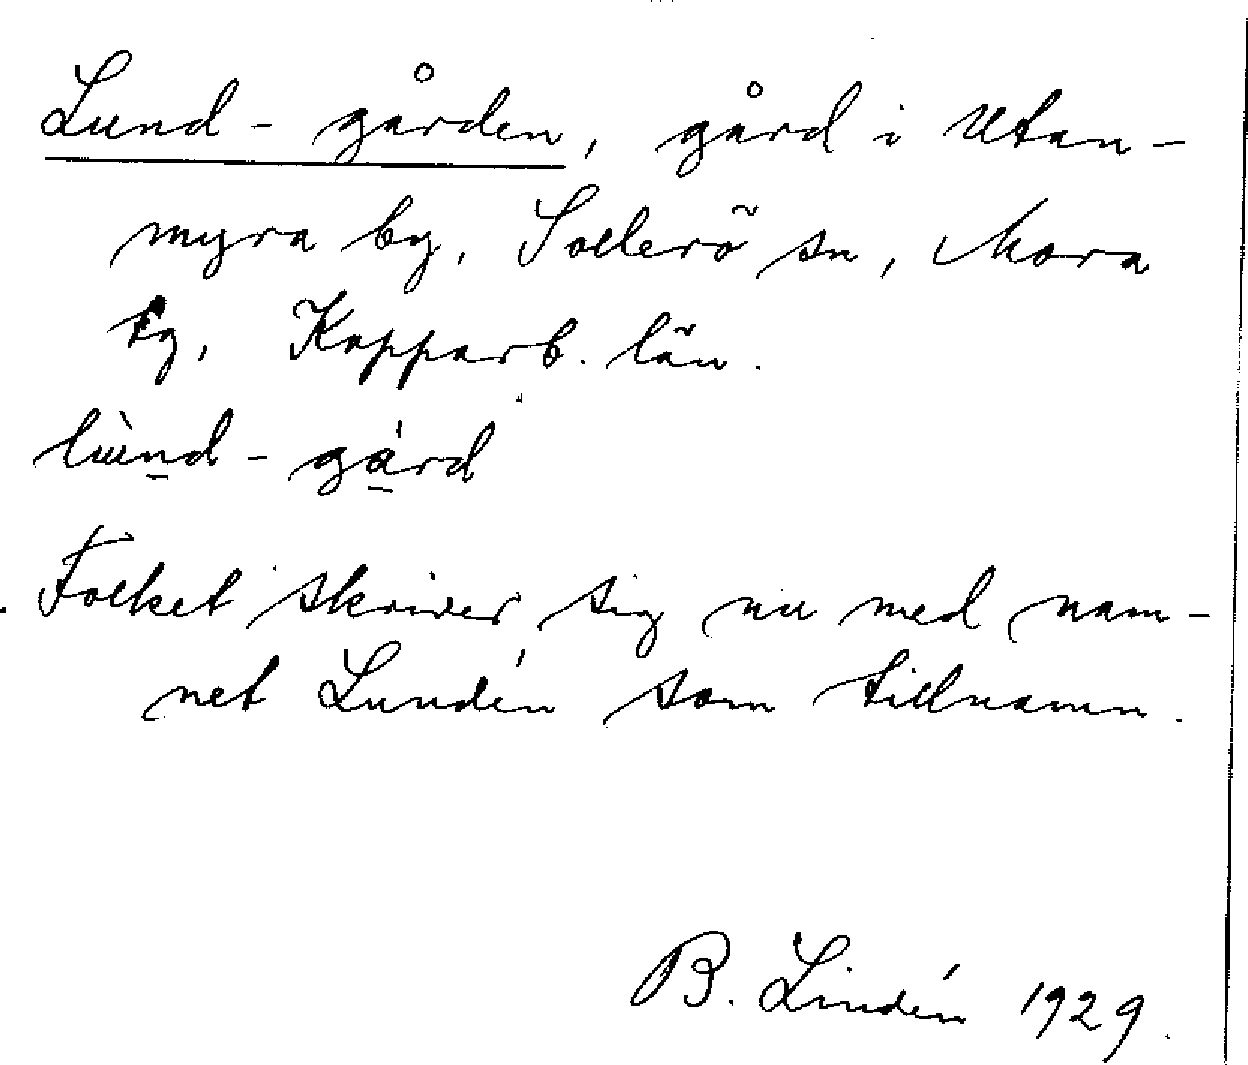 Lund-gården, gård i Utan-
myra by, Sollerö sn, Mora
tg, Kopparb. län.
lùnd-gárd
Folket skriver sig nu med nam-
net Lundén som tillnamn.
B. Lindén 1929.